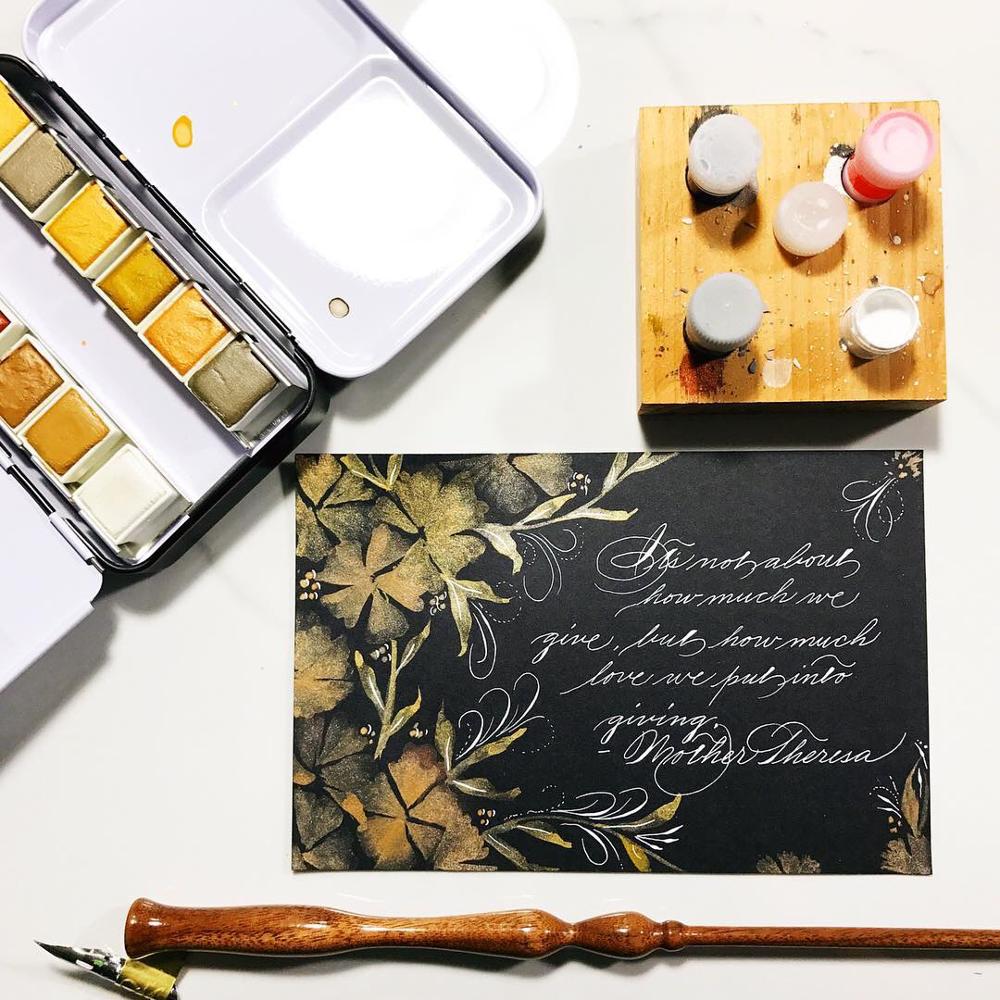 It's not about
how much we
give, but how much
love we put into
giving.
- Mother Theresa